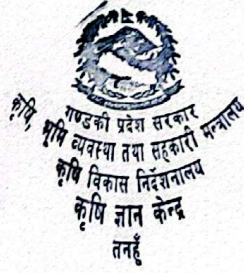 गण्डकी प्रदेश सरकार
कृषि, भूमि व्यवस्था तथा सहकारी मन्त्रालय
कृषि विकास निर्देशनालय
कृषि ज्ञान केन्द्र
तनहुँ